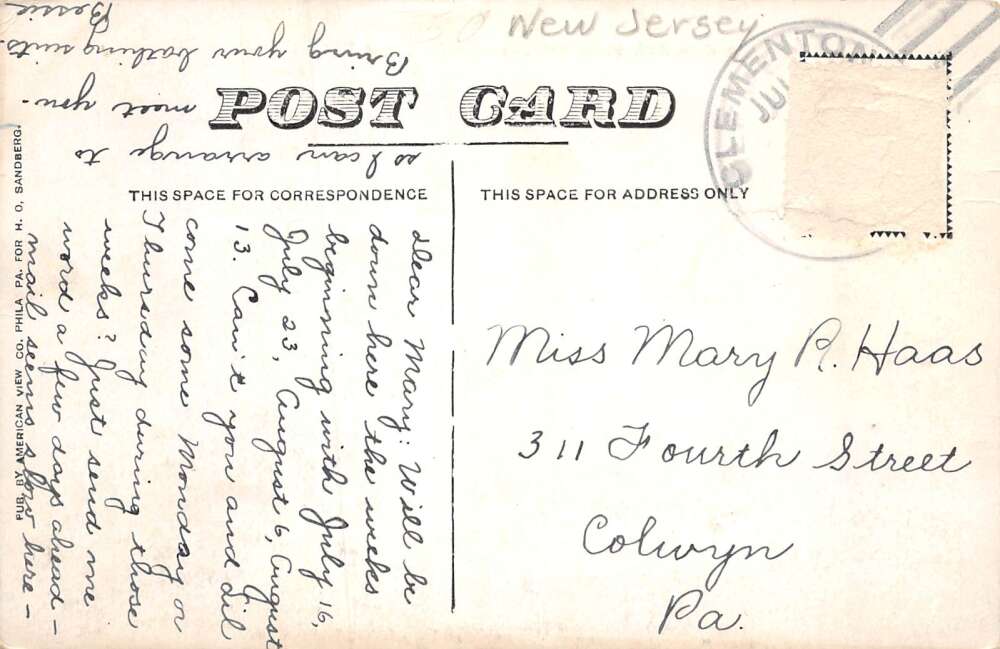 New Jersey
CLEMENTON
JU
POST CARD
THIS SPACE FOR CORRESPONDENCE
THIS SPACE FOR ADDRESS ONLY
Dear Mary: Will be
down here the weeks
beginning with July 16,
July 23, August 6, August
13. Can't you and Lil
come some Monday or
Thursday during those
weeks? Just send me
word a few days ahead -
mail seems slow here -
so I can arrange to
meet you.
Bring your bathing suits.
Bessie
Miss Mary R. Haas
311 Fourth Street
Colwyn
Pa.
PUB. BY AMERICAN VIEW CO. PHILA PA. FOR H. O. SANDBERG.